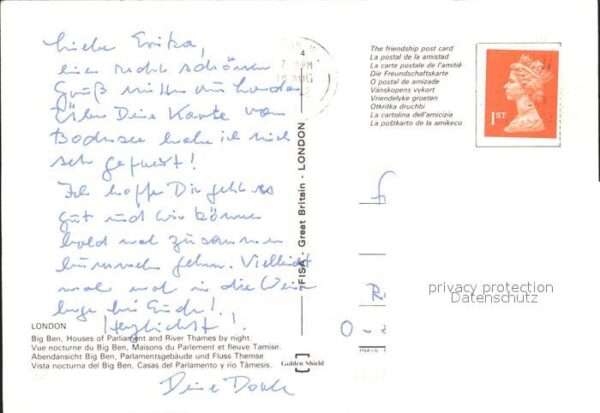 Liebe Erika,
einen recht schönen
Gruß mitten aus London.
Über Deine Karte vom
Bodensee habe ich mich
sehr gefreut!
Ich hoffe Dir geht es
gut und wir können
bald mal zusammen
bummeln gehen. Vielleicht
mal in die
Herzlichst!
Deine
AUG
The friendship post card
La postal de la amistad
La carte postale de l'amitiè
Die Freundschaftskarte
O postal de amizade
Vänskopens vykort
Vriendelyke groeten
Otkritka druchbi
La cartolina dell'amicizia
La poŝtkarto de la amikeco
1ST
FISA - Great Britain - LONDON
privacy protection
Datenschutz
LONDON
Big Ben, Houses of Parliament and River Thames by night.
Vue nocturne du Big Ben, Maisons du Parlement et fleuve Tamise.
Abendansicht Big Ben, Parlamentsgebäude und Fluss Themse
Vista nocturna del Big Ben, Casas del Parlamento y río Támesis.
Golden Shield